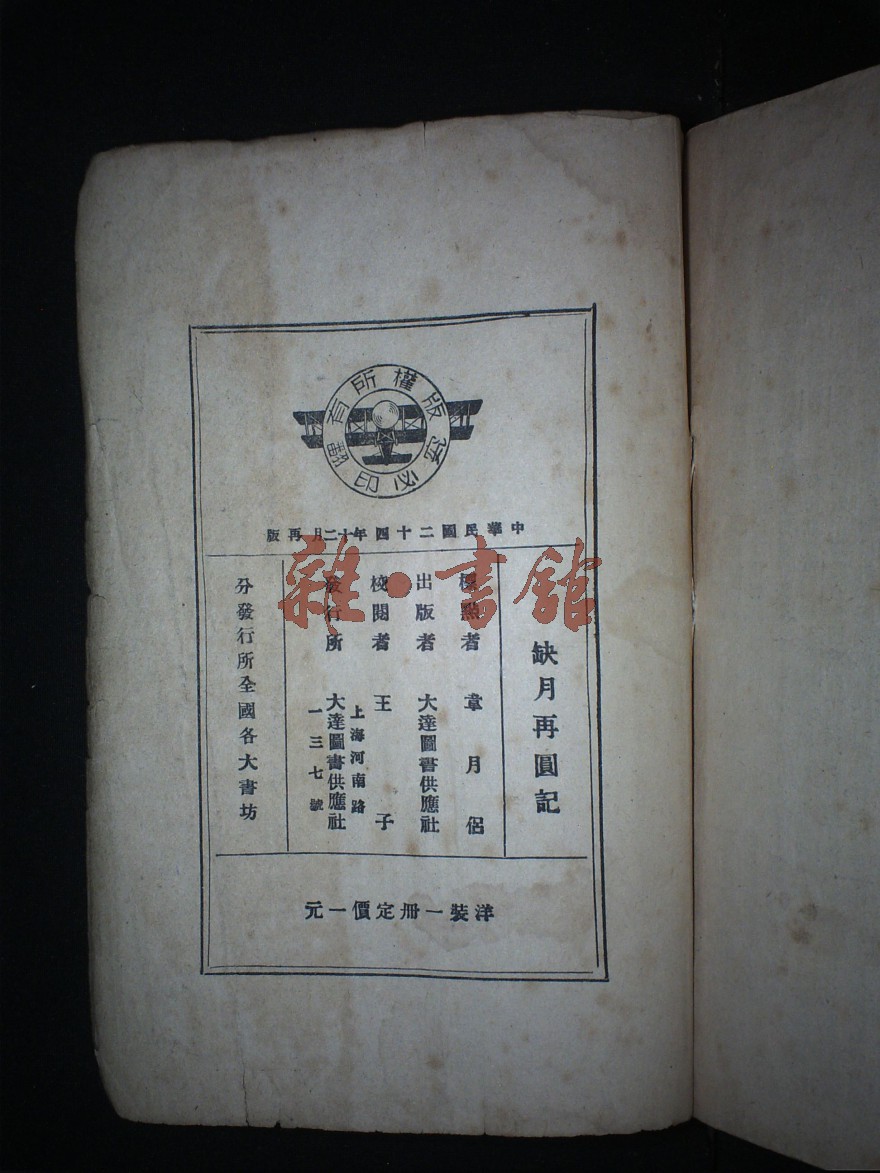 版權所有
翻印必究
中華民國二十四年十二月再版
缺月再圓記
標點者 章月侶
出版者 大達圖書供應社
校閱者 王子
發行所 大達圖書供應社
上海河南路
一三七號
分發行所全國各大書坊
洋裝一册定價一元
雜·書館